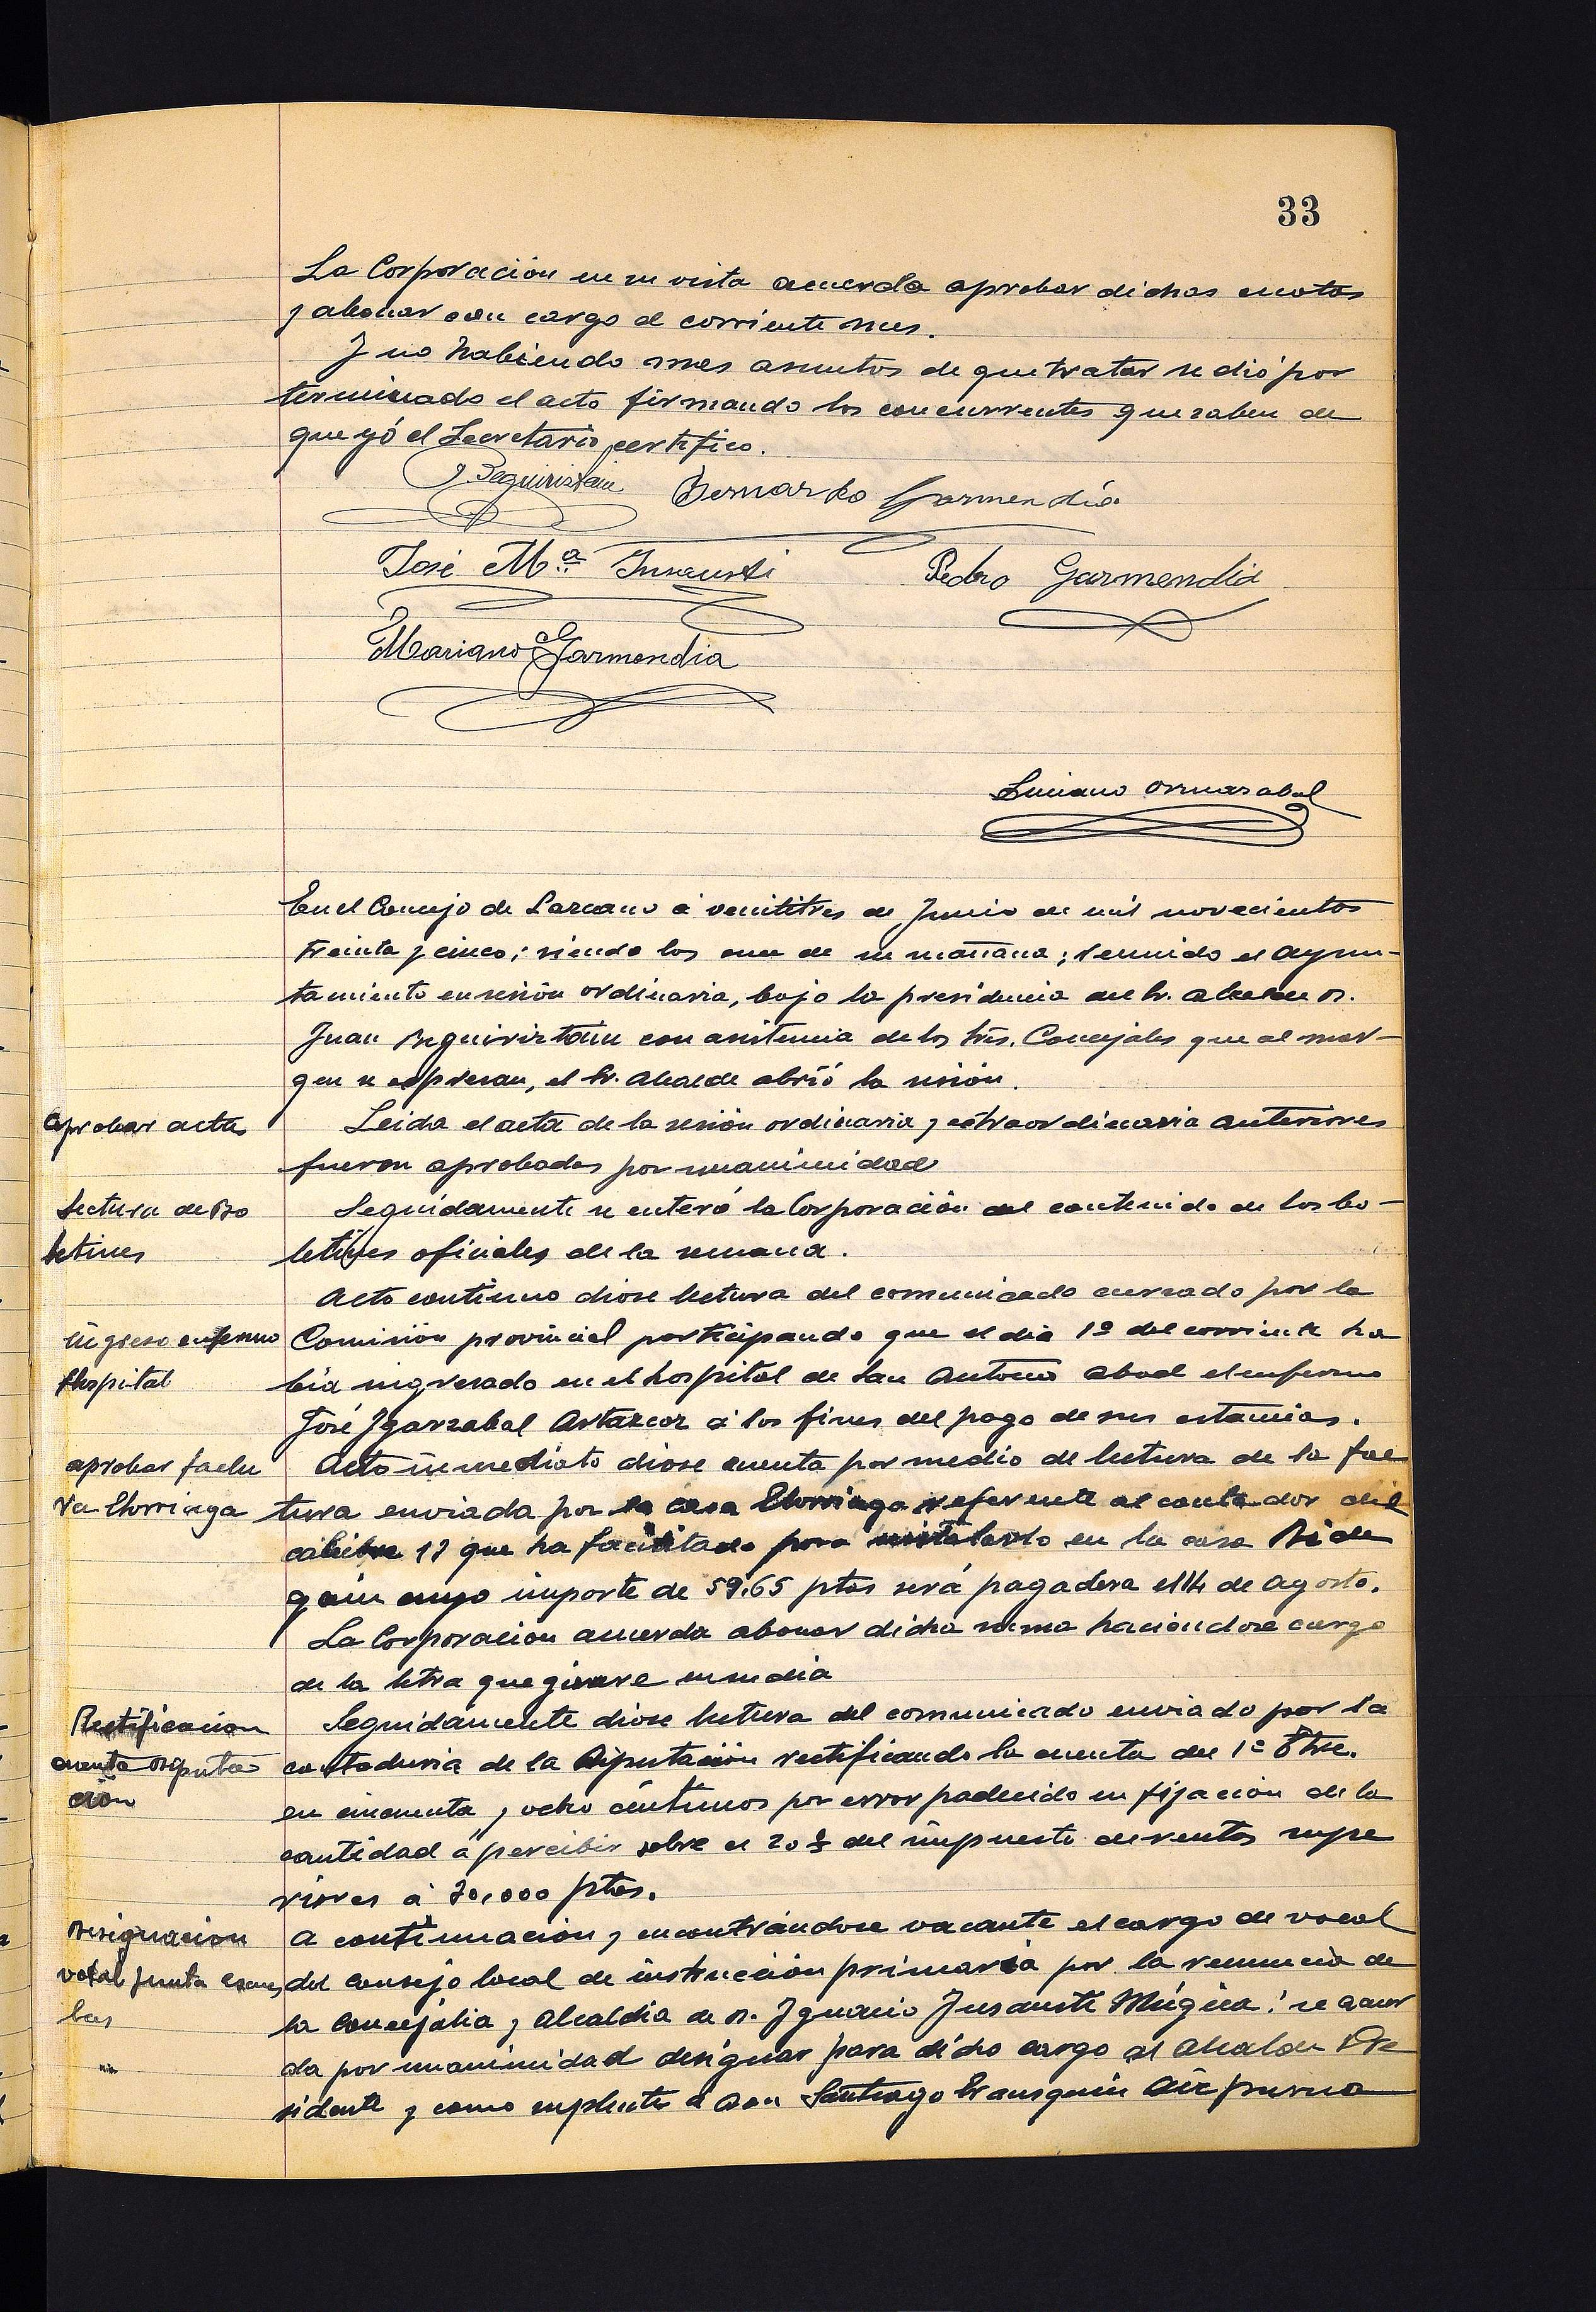 33
La Corporación en su vista acuerda aprobar dichas cuotas
y abonar con cargo al corriente mes.
Y no habiendo mas asuntos de que tratar se dió por
terminado el acto firmando los concurrentes que saben de
que yó el Secretario certifico.
J. Beguiristain Bernardo Garmendia
José Mª Insausti Pedro Garmendia
Mariano Garmendia
Luciano Ormazabal
En el Concejo de Lazcano á veintitres de Junio de mil novecientos
treinta y cinco; siendo las once de su mañana; reunido el Ayun-
tamiento en sesión ordinaria, bajo la presidencia del Sr. Alcalde D.
Juan Beguiriztain con asistencia de los Sres. Concejales que al mar-
gen se expresan, el Sr. Alcalde abrió la sesión.
Aprobar actas
Leida el acta de la sesión ordinaria y extraordinaria anteriores
fueron aprobadas por unanimidad
Lectura de Bo
letines
Seguidamente se enteró la Corporación del contenido de los bo-
letines oficiales de la semana.
Acto continuo diose lectura del comunicado cursado por la
ingreso enfermo
Hospital
Comisión provincial participando que el dia 1º del corriente ha
bia ingresado en el hospital de San Antonio Abad el enfermo
José Igarzabal Artazcoz á los fines del pago de sus estancias.
aprobar factu
ra Elorringa
Acto inmediato diose cuenta por medio de lectura de la fac
tura enviada por la casa Elorriaga referente al contador del
calibre 13 que ha facilitado para instalarlo en la casa Bide
gain cuyo importe de 59,65 ptas será pagadera el 14 de Agosto.
La Corporacion acuerda abonar dicha suma haciendose cargo
de la letra que girare en su dia
Rectificacion
cuenta Diputa
ción
Seguidamente diose lectura del comunicado enviado por la
contaduria de la Diputación rectificando la cuenta del 1º Tbre.
en cincuenta y ocho céntimos por error padecido en fijacion de la
cantidad á percibir sobre el 20 % del impuesto de rentas supe
riores á 70,000 ptas.
Designacion
vocal Junta escue
las
A continuación y encontrándose vacante el cargo de vocal
del consejo local de instrucción primaria por la renuncia de
la Concejalia y Alcaldia de D. Ignacio Insausti Múgica: se acuer
da por unanimidad designar para dicho cargo al Alcalde Pre
sidente y como suplente á Don Santiago